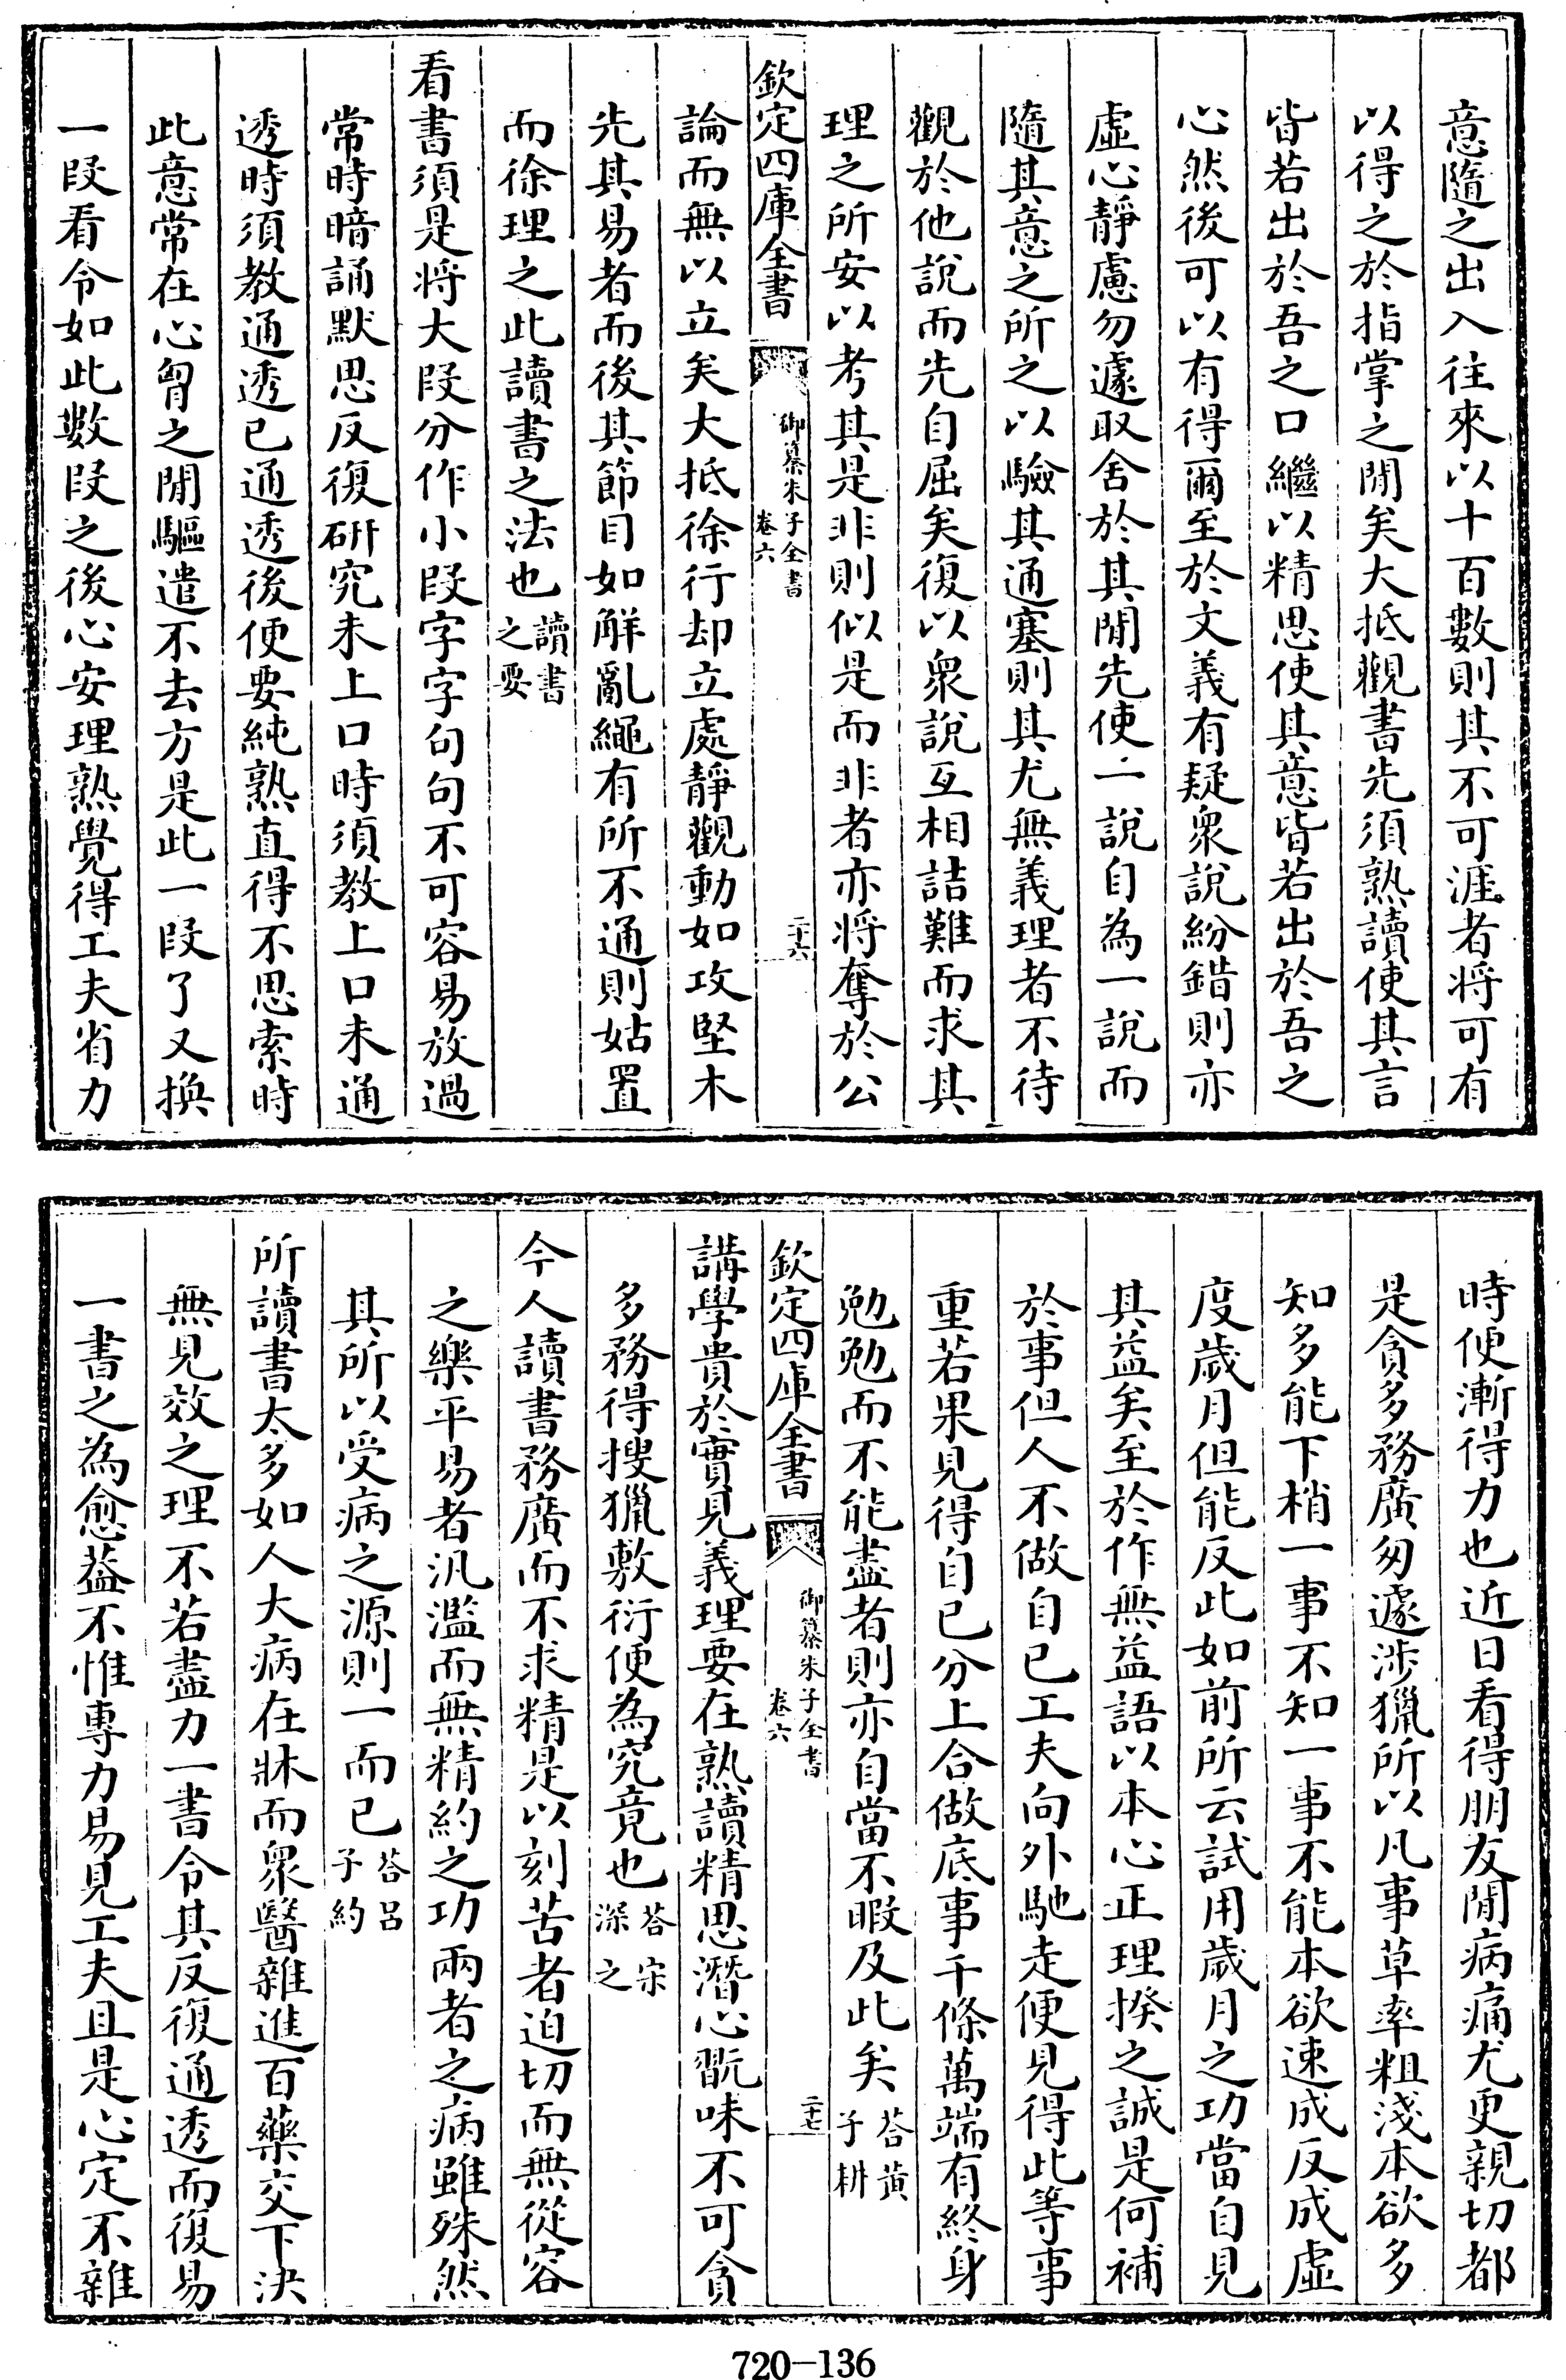 意隨之出入往來以十百數則其不可涯者将可有
以得之於指掌之閒矣大抵觀書先須熟讀使其言
皆若出於吾之口繼以精思使其意皆若出於吾之
心然後可以有得爾至於文義有疑衆說紛錯則亦
虛心靜慮勿遽取舍於其閒先使一說自為一說而
隨其意之所之以驗其通塞則其尤無義理者不待
觀於他說而先自屈矣復以衆說互相詰難而求其
理之所安以考其是非則似是而非者亦将奪於公
欽定四庫全書 御纂朱子全書 卷六 二十六
論而無以立矣大抵徐行却立處靜觀動如攻堅木
先其易者而後其節目如解亂繩有所不通則姑置
而徐理之此讀書之法也讀書之要
看書須是将大段分作小段字字句句不可容易放過
常時暗誦默思反復研究未上口時須教上口未通
透時須教通透已通透後便要純熟直得不思索時
此意常在心胷之閒驅遣不去方是此一段了又換
一段看令如此數段之後心安理熟覺得工夫省力
時便漸得力也近日看得朋友閒病痛尤更親切都
是貪多務廣匆遽涉獵所以凡事草率粗淺本欲多
知多能下梢一事不知一事不能本欲速成反成虛
度歲月但能反此如前所云試用歲月之功當自見
其益矣至於作無益語以本心正理揆之誠是何補
於事但人不做自已工夫向外馳走便見得此等事
重若果見得自已分上合做底事千條萬端有終身
勉勉而不能盡者則亦自當不暇及此矣荅黃子耕
欽定四庫全書 御纂朱子全書 卷六 二十七
講學貴於實見義理要在熟讀精思潛心翫味不可貪
多務得搜獵敷衍便為究竟也荅宋深之
今人讀書務廣而不求精是以刻苦者迫切而無從容
之樂平易者汎濫而無精約之功兩者之病雖殊然
其所以受病之源則一而已荅呂子約
所讀書太多如人大病在牀而衆醫雜進百藥交下決
無見效之理不若盡力一書令其反復通透而復易
一書之為愈葢不惟專力易見工夫且是心定不雜
720-136